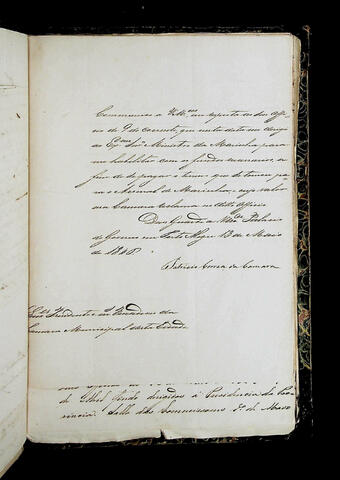 Communico a VMces em resposta ao seu Offi-
cio de 9 do corrente, que nesta data me dirijo
ao Exmo Snr Ministro da Marinha para
me habilitar com os fundos necessarios, a
fim de se pagar o terreno que se tomou pa-
ra o Arsenal de Marinha; cujo valor
essa Camara reclama no dito Officio.
Deos Guarde a VMces Palacio
do Governo em Porto Alegre 13 de Maio
de 1848
Patricio Correa da Camara
Snrs Presidente e Vereadores da
Camara Municipal desta Cidade
dirigidos á Presidencia da Pro-
vincia. Salla das Commissoens